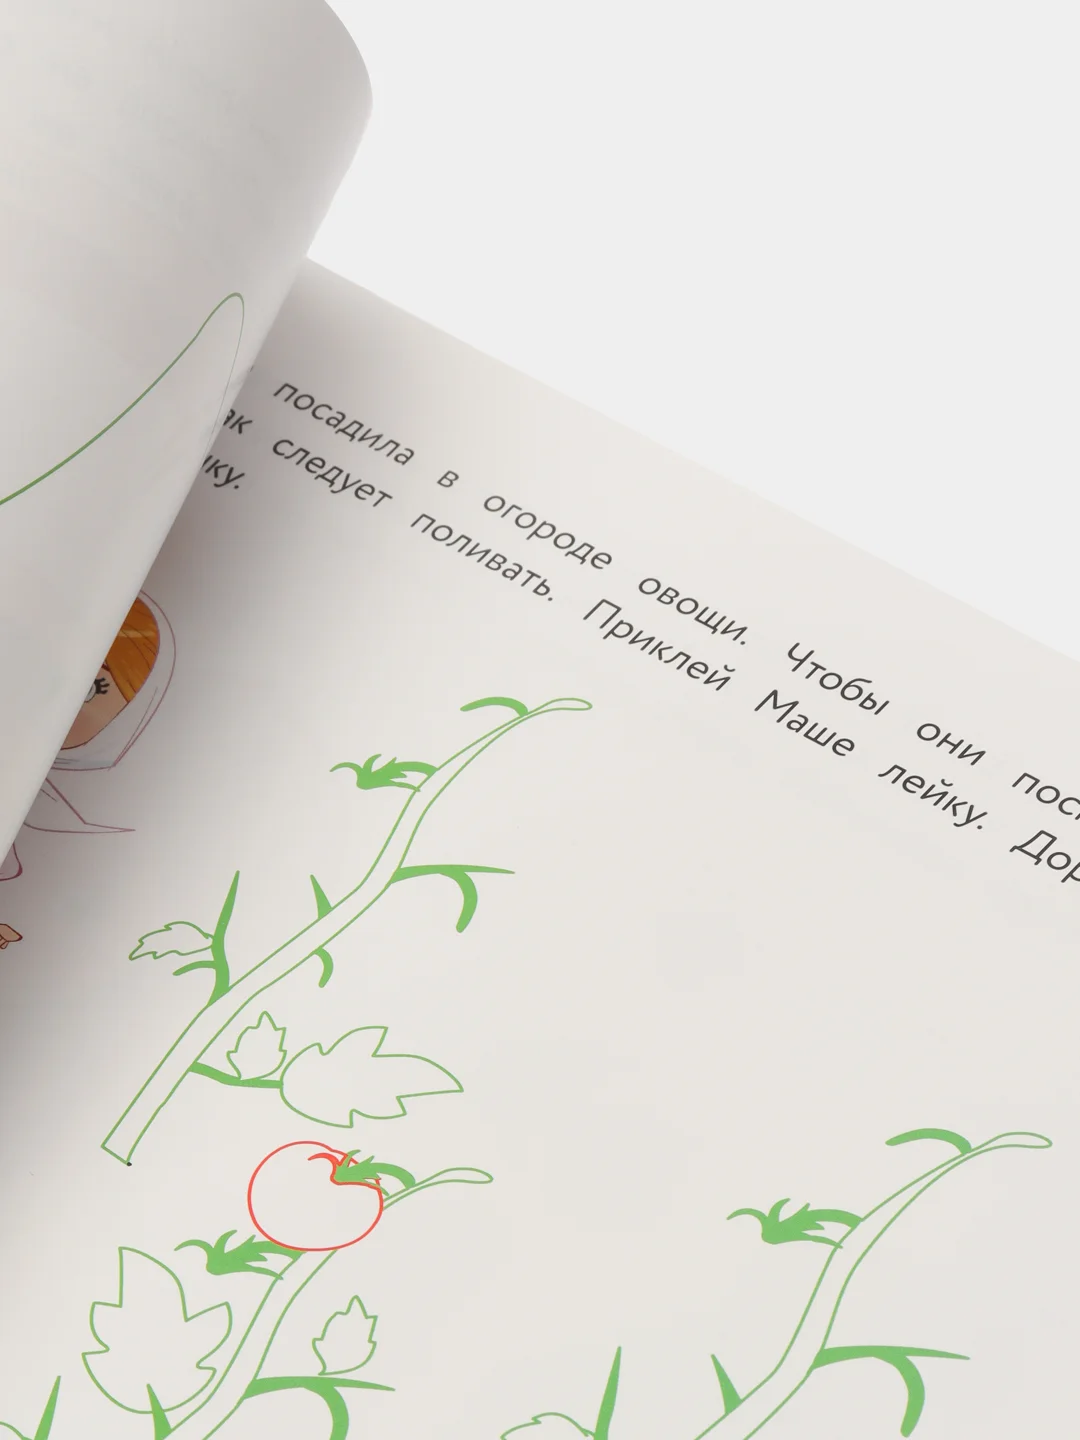 посадила в огороде овощи. Чтобы они
следует поливать. Приклей Маше лейку.